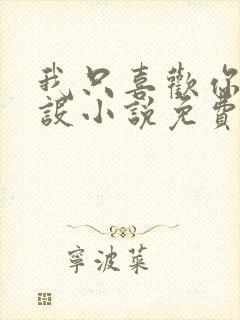 我只喜歡你
設小說免費
寧波菜